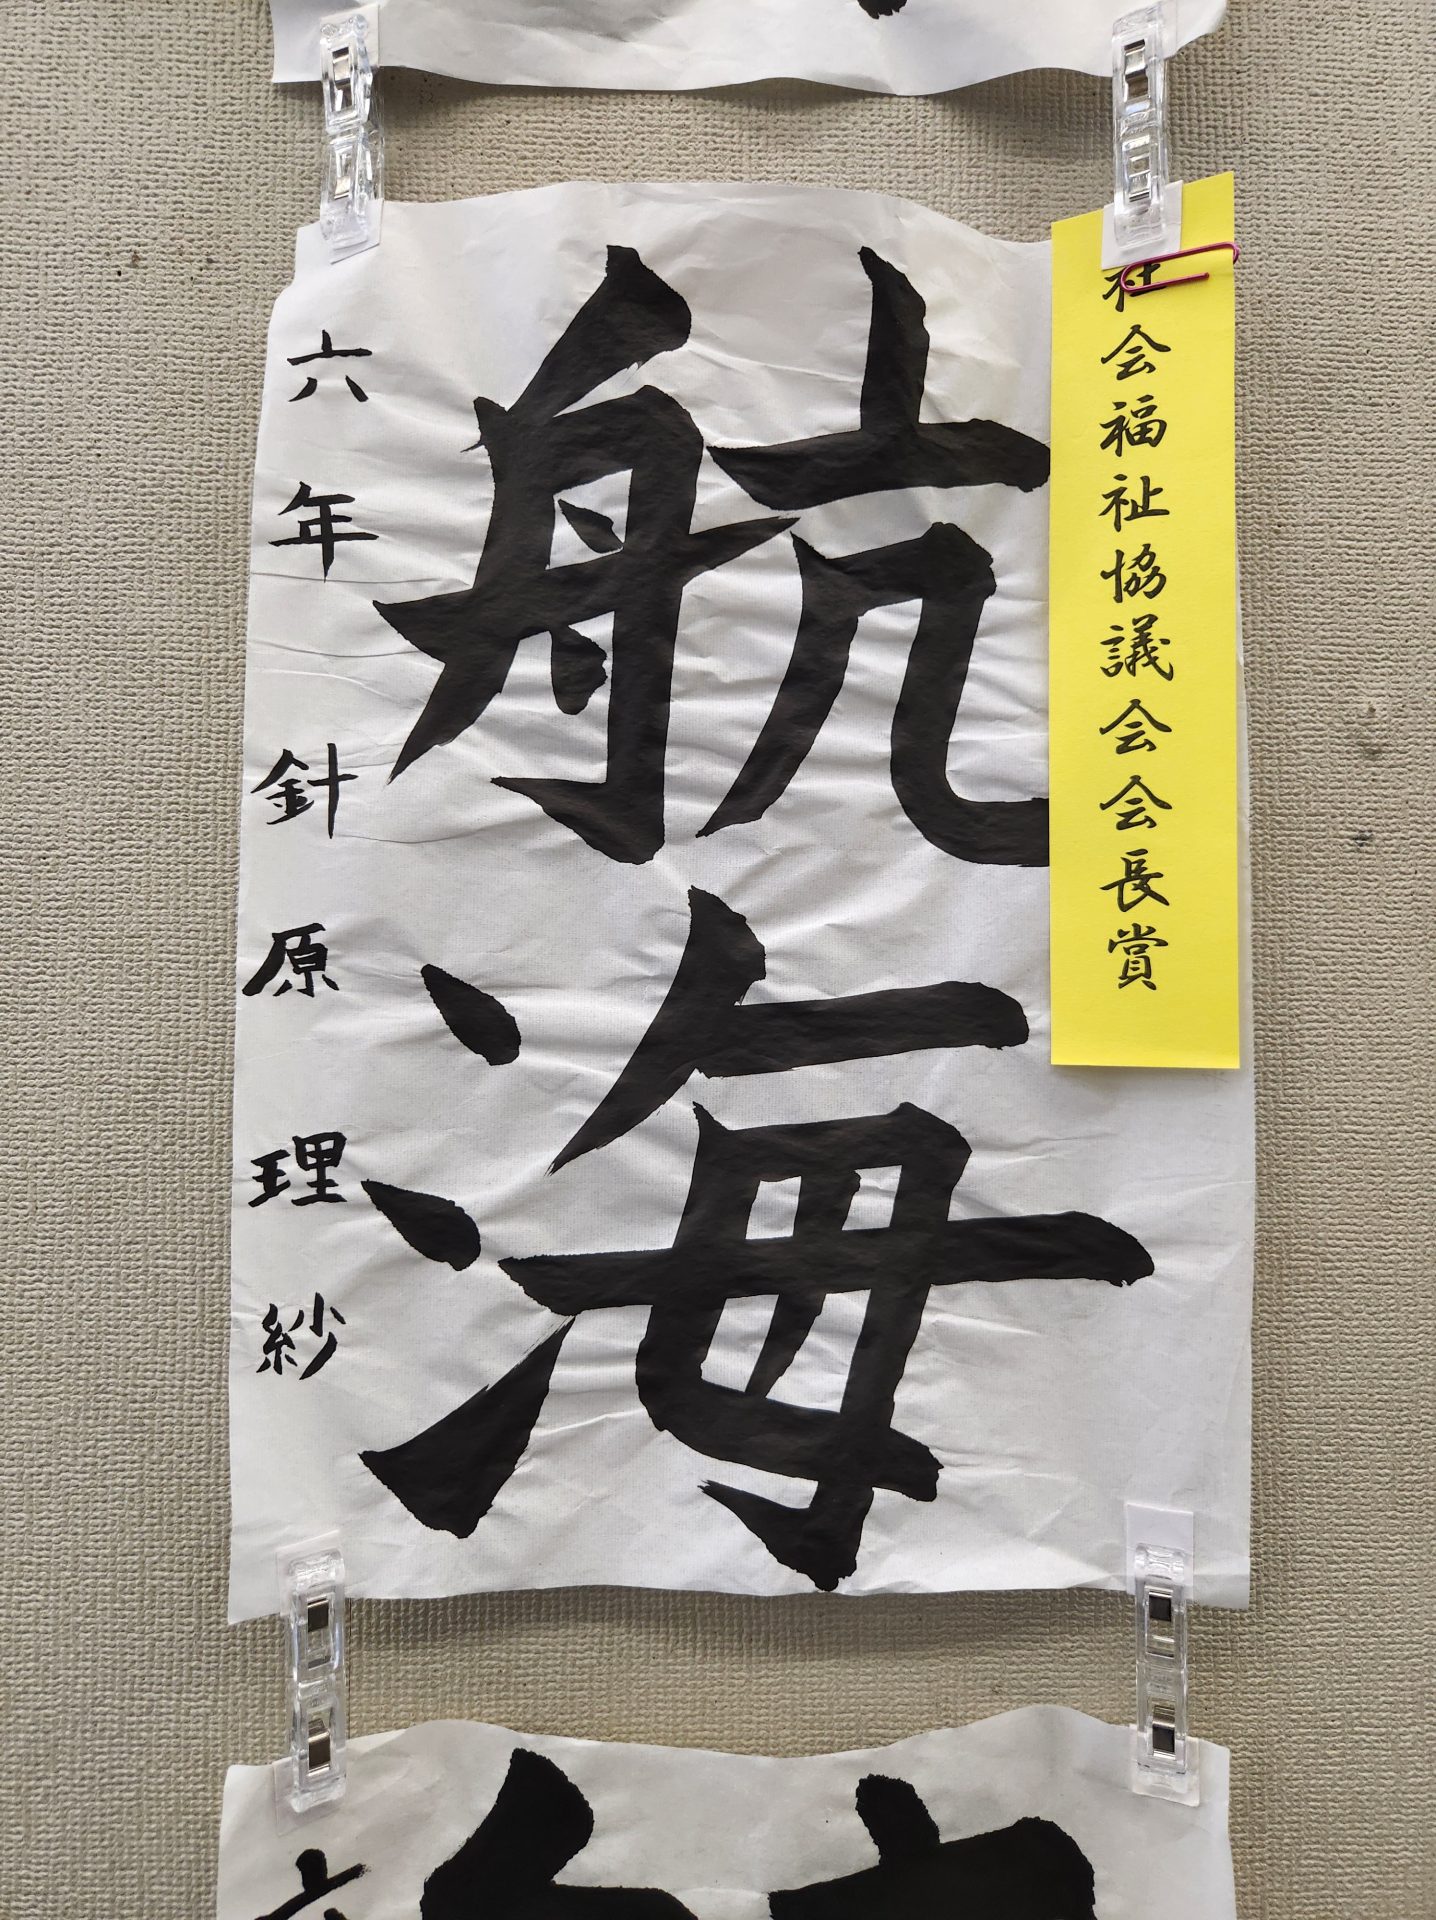 社会福祉協議会会長賞
航海
六年 針原理紗